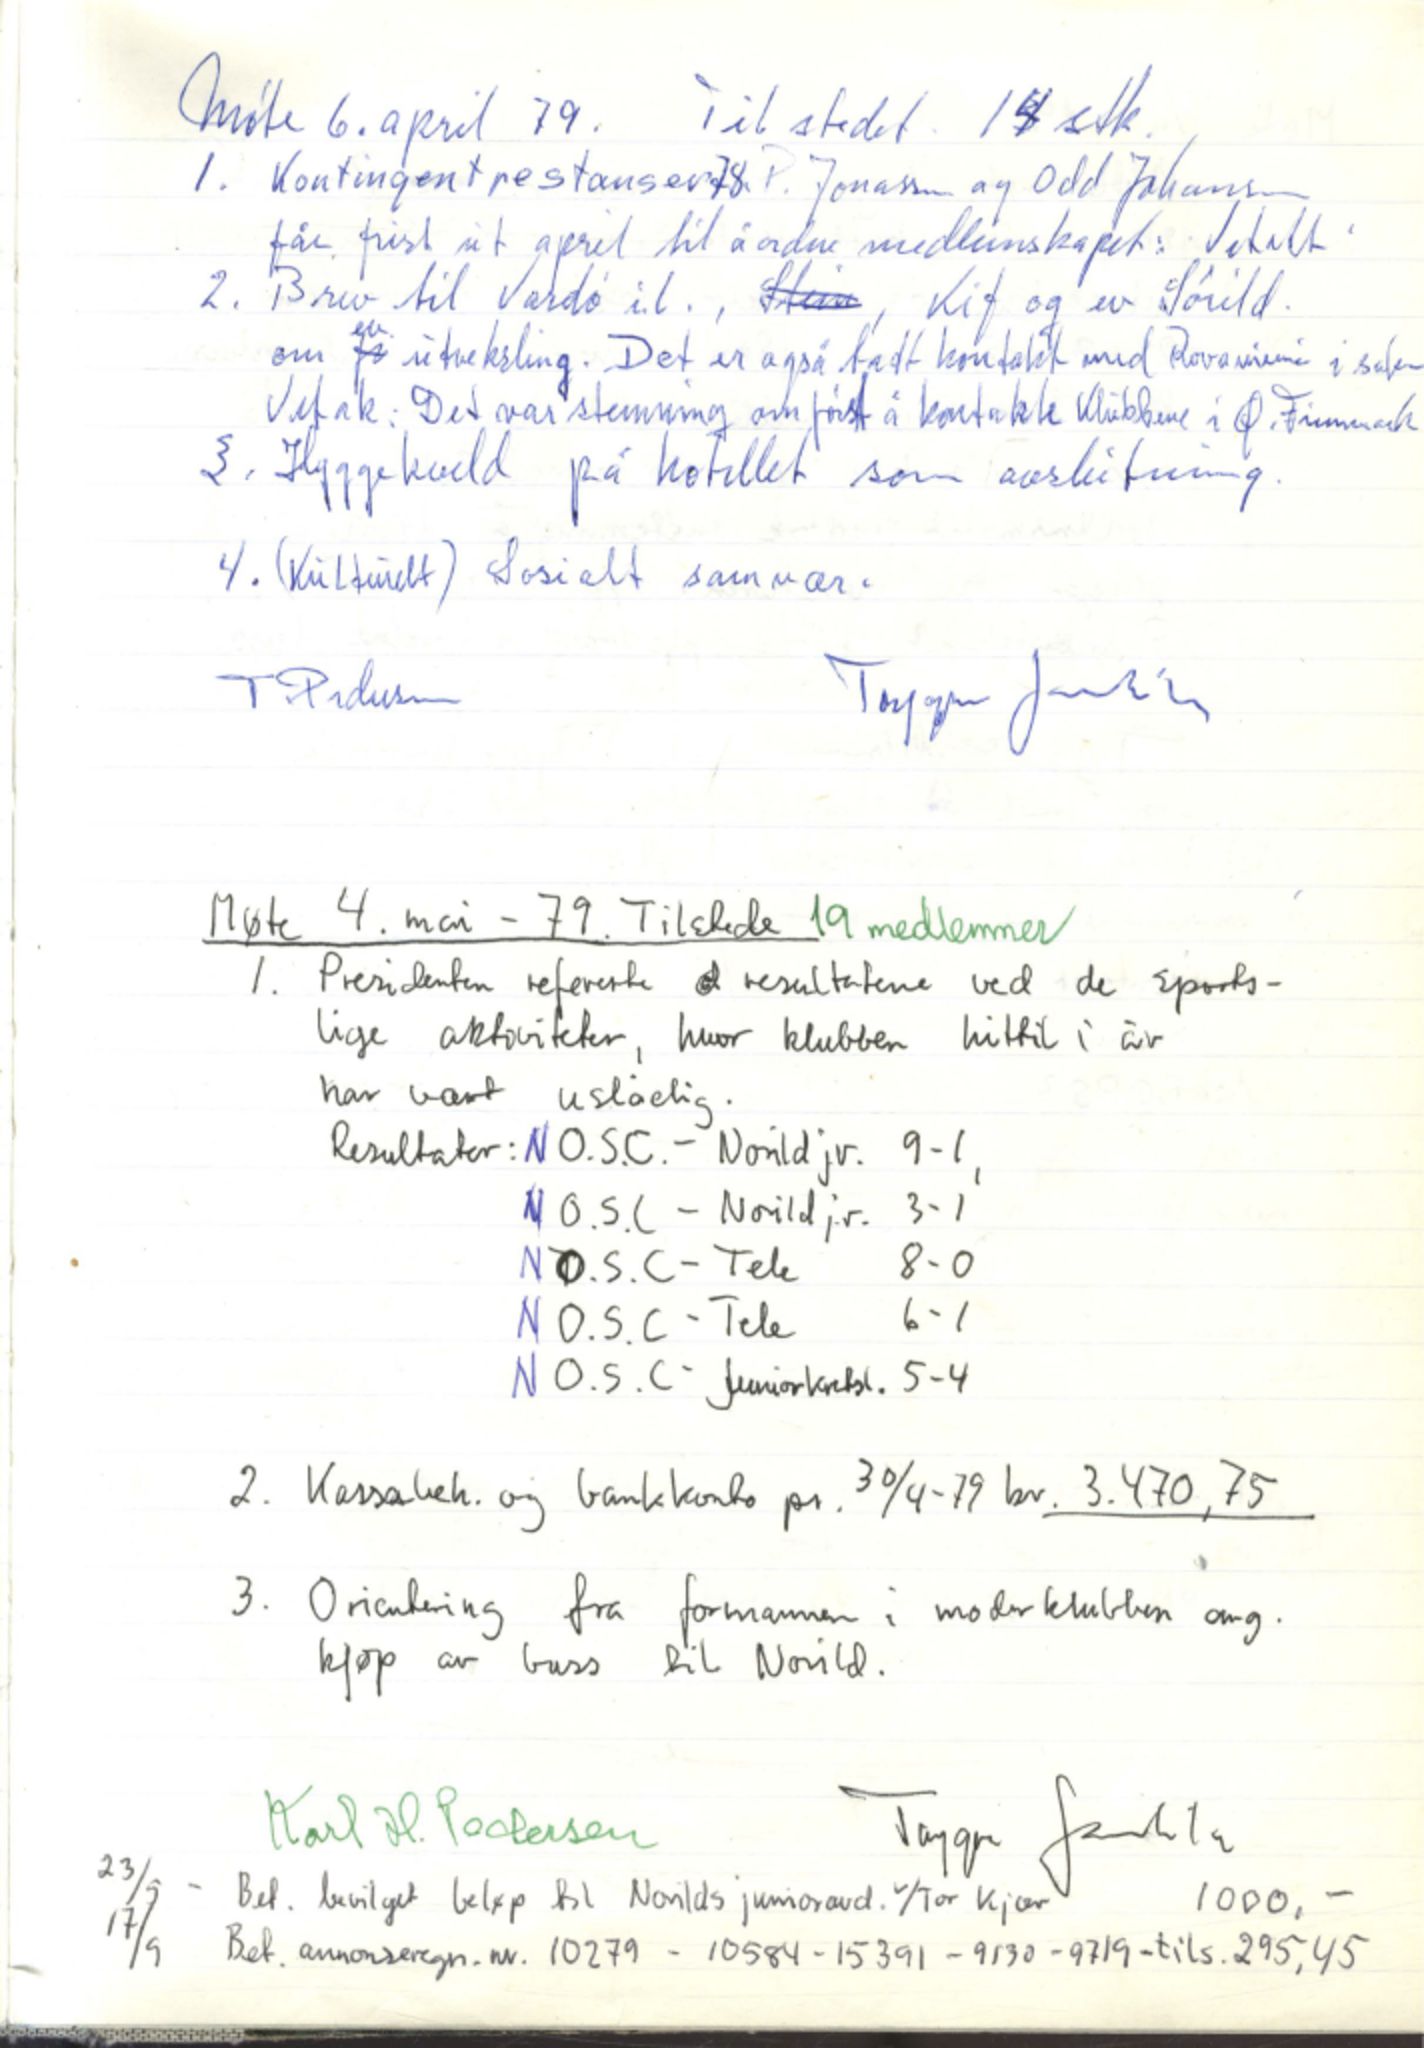 Møte 6. april 79. Til stedet. 18 stk.
1. Kontingentrestanser 78. P. Jonassen og Odd Johansen
får frist ut april til å ordne medlemskapet: Vetatt.
2. Brev til Vardø i.l., Kif og ev Sørild.
om ev. utveksling. Det er også tadt kontakt med Rovaniemi i saken
Vetak: Det var stemning om først å kontakte klubbene i Ø. Finnmark
3. Hyggekveld på hotellet som avslutning.
4. (Kulturelt) Sosialt samvær.
T Pedersen
Trygge
Møte 4. mai - 79. Tilstede 19 medlemmer
1. Presidenten refererte resultatene ved de sports-
lige aktiviteter, hvor klubben hittil i år
har vært uslåelig.
Resultater: N O.S.C. - Norild jr. 9-1,
N O.S.C - Norild jr. 3-1
N O.S.C - Tele 8-0
N O.S.C - Tele 6-1
N O.S.C - Juniorkretsl. 5-4
2. Kassabeh. og bankkonto pr. 30/4-79 kr. 3.470,75
3. Orientering fra formannen i moderklubben ang.
kjøp av buss til Norild.
Karl H. Pedersen
Trygge
23/5 - Bet. bevilget beløp til Norilds junioravd. v/Tor Kjær 1000,-
17/9 Bet. annonseregn. nr. 10279 - 10584 - 15391 - 9130 - 9719 - tils. 295,45